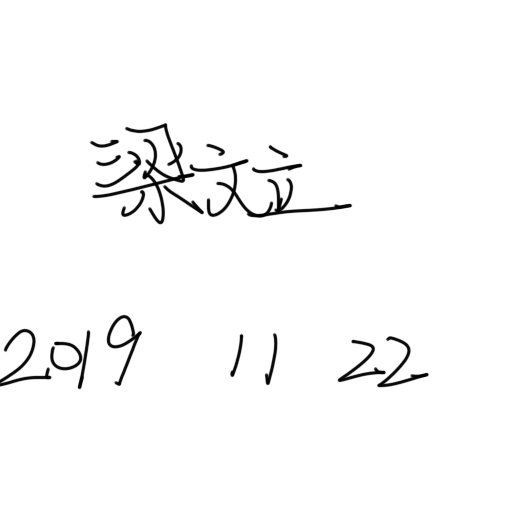 梁文立
2019 11 22